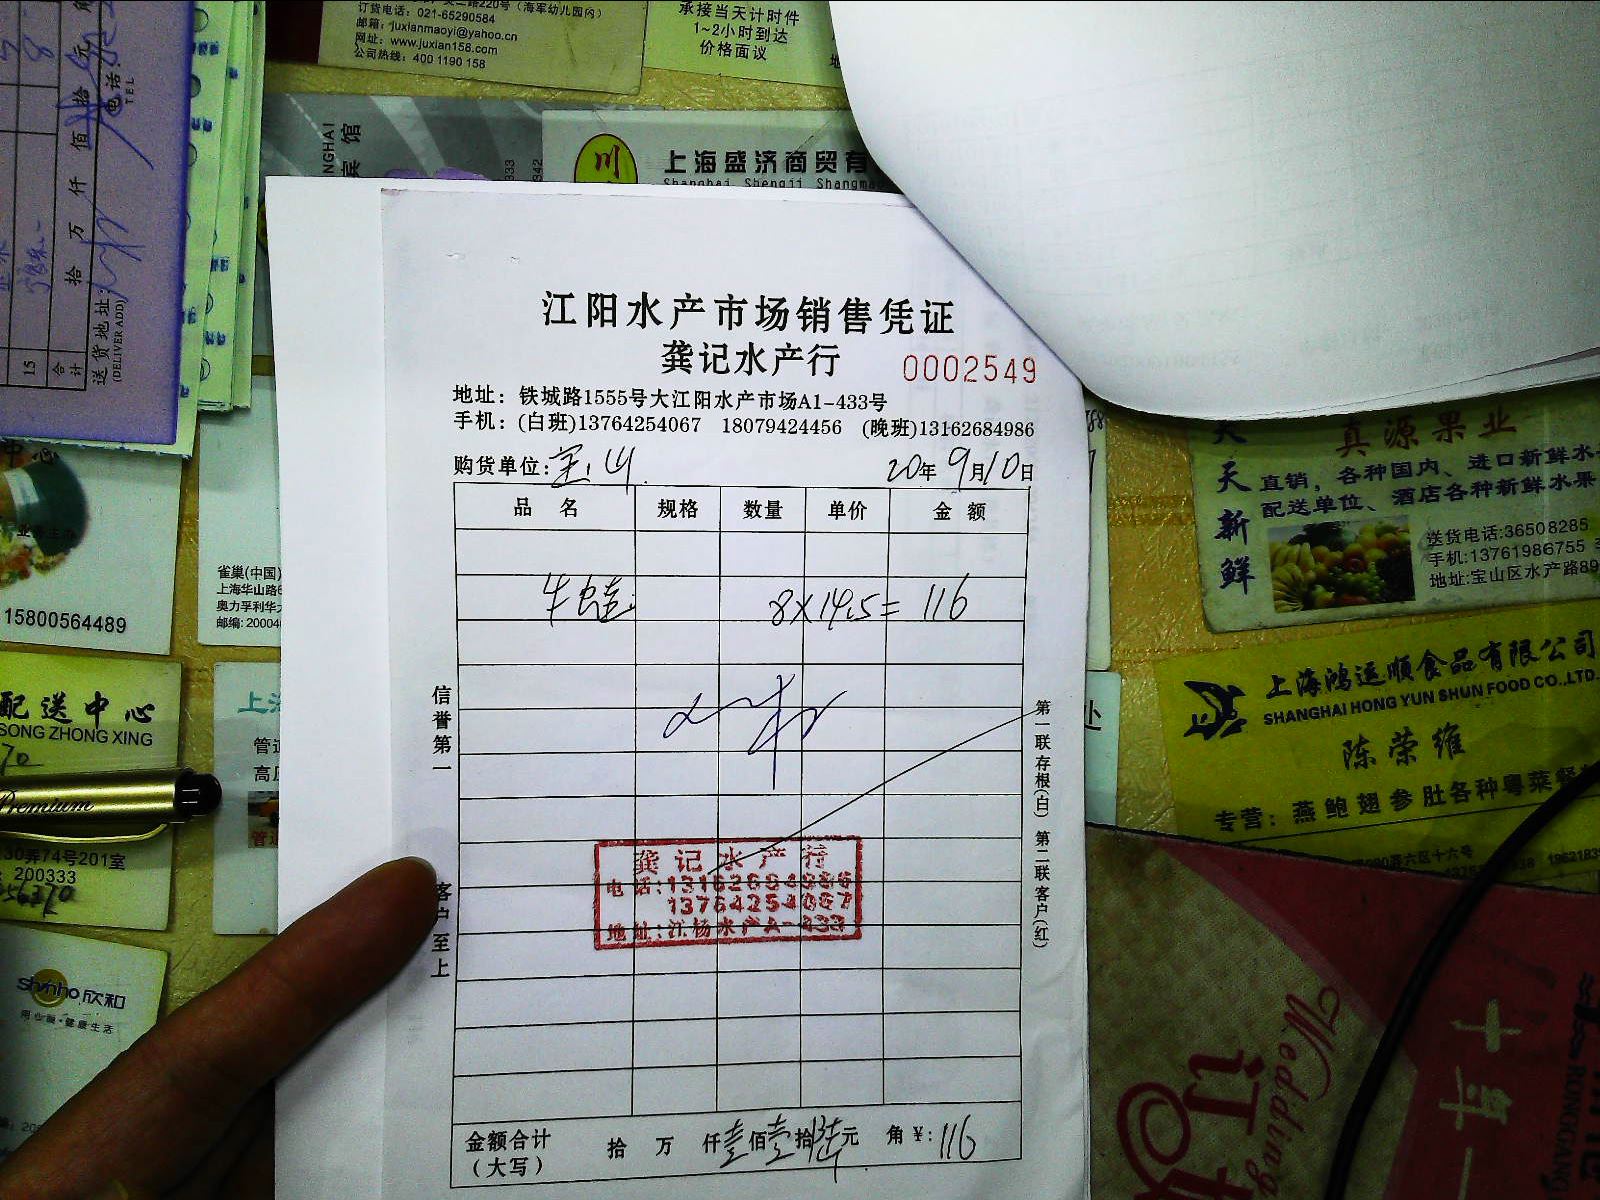 订货电话：021-65290584
邮箱：juxianmaoyi@yahoo.cn
网址：www.juxian158.com
公司热线：400 1190 158
承接当天计时件
1~2小时到达
价格面议
宾馆
川
上海盛济商贸有
Shanghai Shengji Shangma
佰 拾 元
拾 万 仟
电话：
TEL
送货地址：
(DELIVER ADD)
15
合计
江阳水产市场销售凭证
龚记水产行
0002549
地址：铁城路1555号大江阳水产市场A1-433号
手机：(白班)13764254067 18079424456 (晚班)13162684986
购货单位：宝山 20年9月10日
品 名 规格 数量 单价 金 额
牛蛙 8×14.5= 116
信誉第一
客户至上
第一联存根(白) 第二联客户(红)
龚记水产行
电话:13162684986
13764254067
地址:江杨水产A-433
金额合计 拾 万 仟壹佰壹拾陆元 角 ¥:116
(大写)
天天新鲜
真源果业
直销，各种国内、进口新鲜水
配送单位、酒店各种新鲜水果
送货电话:36508285
手机:13761986755
地址:宝山区水产路89
上海鸿运顺食品有限公司
SHANGHAI HONG YUN SHUN FOOD CO.,LTD.
陈荣维
专营：燕鲍翅参肚各种粤菜餐
雀巢(中国)
上海华山路
奥力孚利华
邮编: 20004
15800564489
配送中心
SONG ZHONG XING
Premium
30弄74号201室
200333
管道
高
shinho欣和
用心酿·健康生活
Wedding
订
十年一
RONGGANG